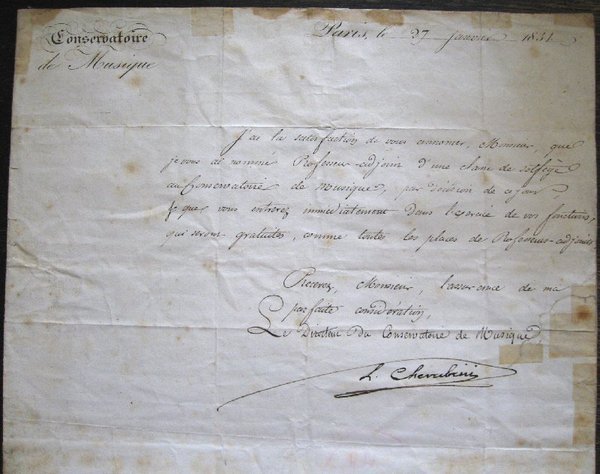 Conservatoire
de Musique
Paris, le 27 Janvier 1831
J'ai la satisfaction de vous annoncer, Monsieur, que
je vous ai nommé Professeur-adjoint d'une classe de solfège
au Conservatoire de Musique, par décision de ce jour,
& que vous entrerez immédiatement dans l'exercice de vos fonctions,
qui seront gratuites, comme toutes les places de Professeurs-adjoints
Recevez, Monsieur, l'assurance de ma
parfaite considération,
Le Directeur du Conservatoire de Musique
L. Cherubini